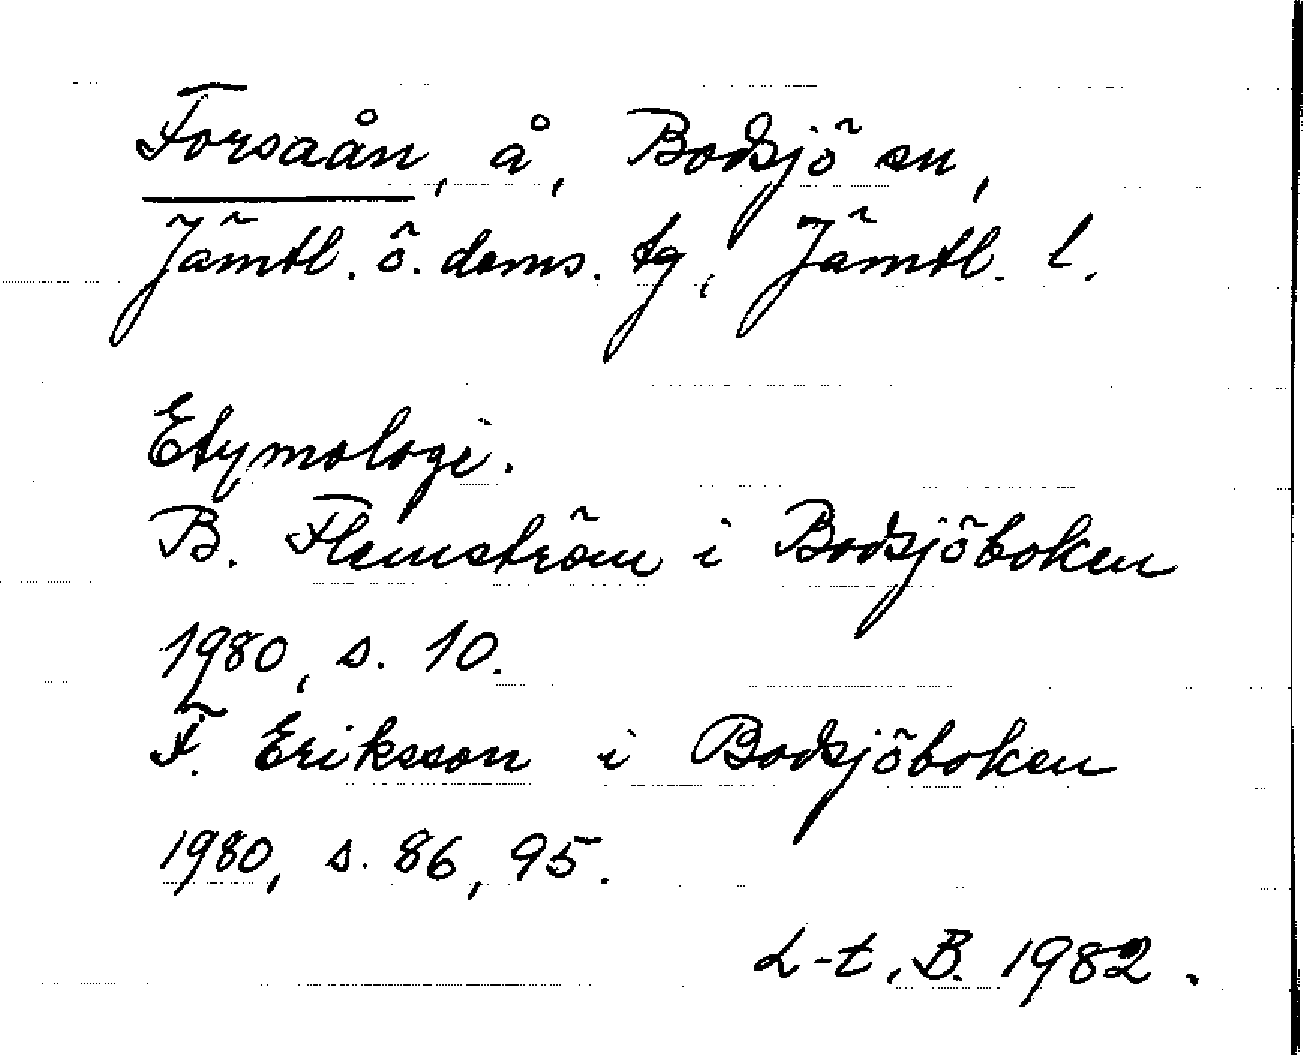 Forsaån, å, Bodsjö sn,
Jämtl. ö. doms. tg, Jämtl. l.
Etymologi.
B. Flemström i Bodsjöboken
1980, s. 10.
F. Eriksson i Bodsjöboken
1980, s. 86, 95.
L-t, B. 1982.